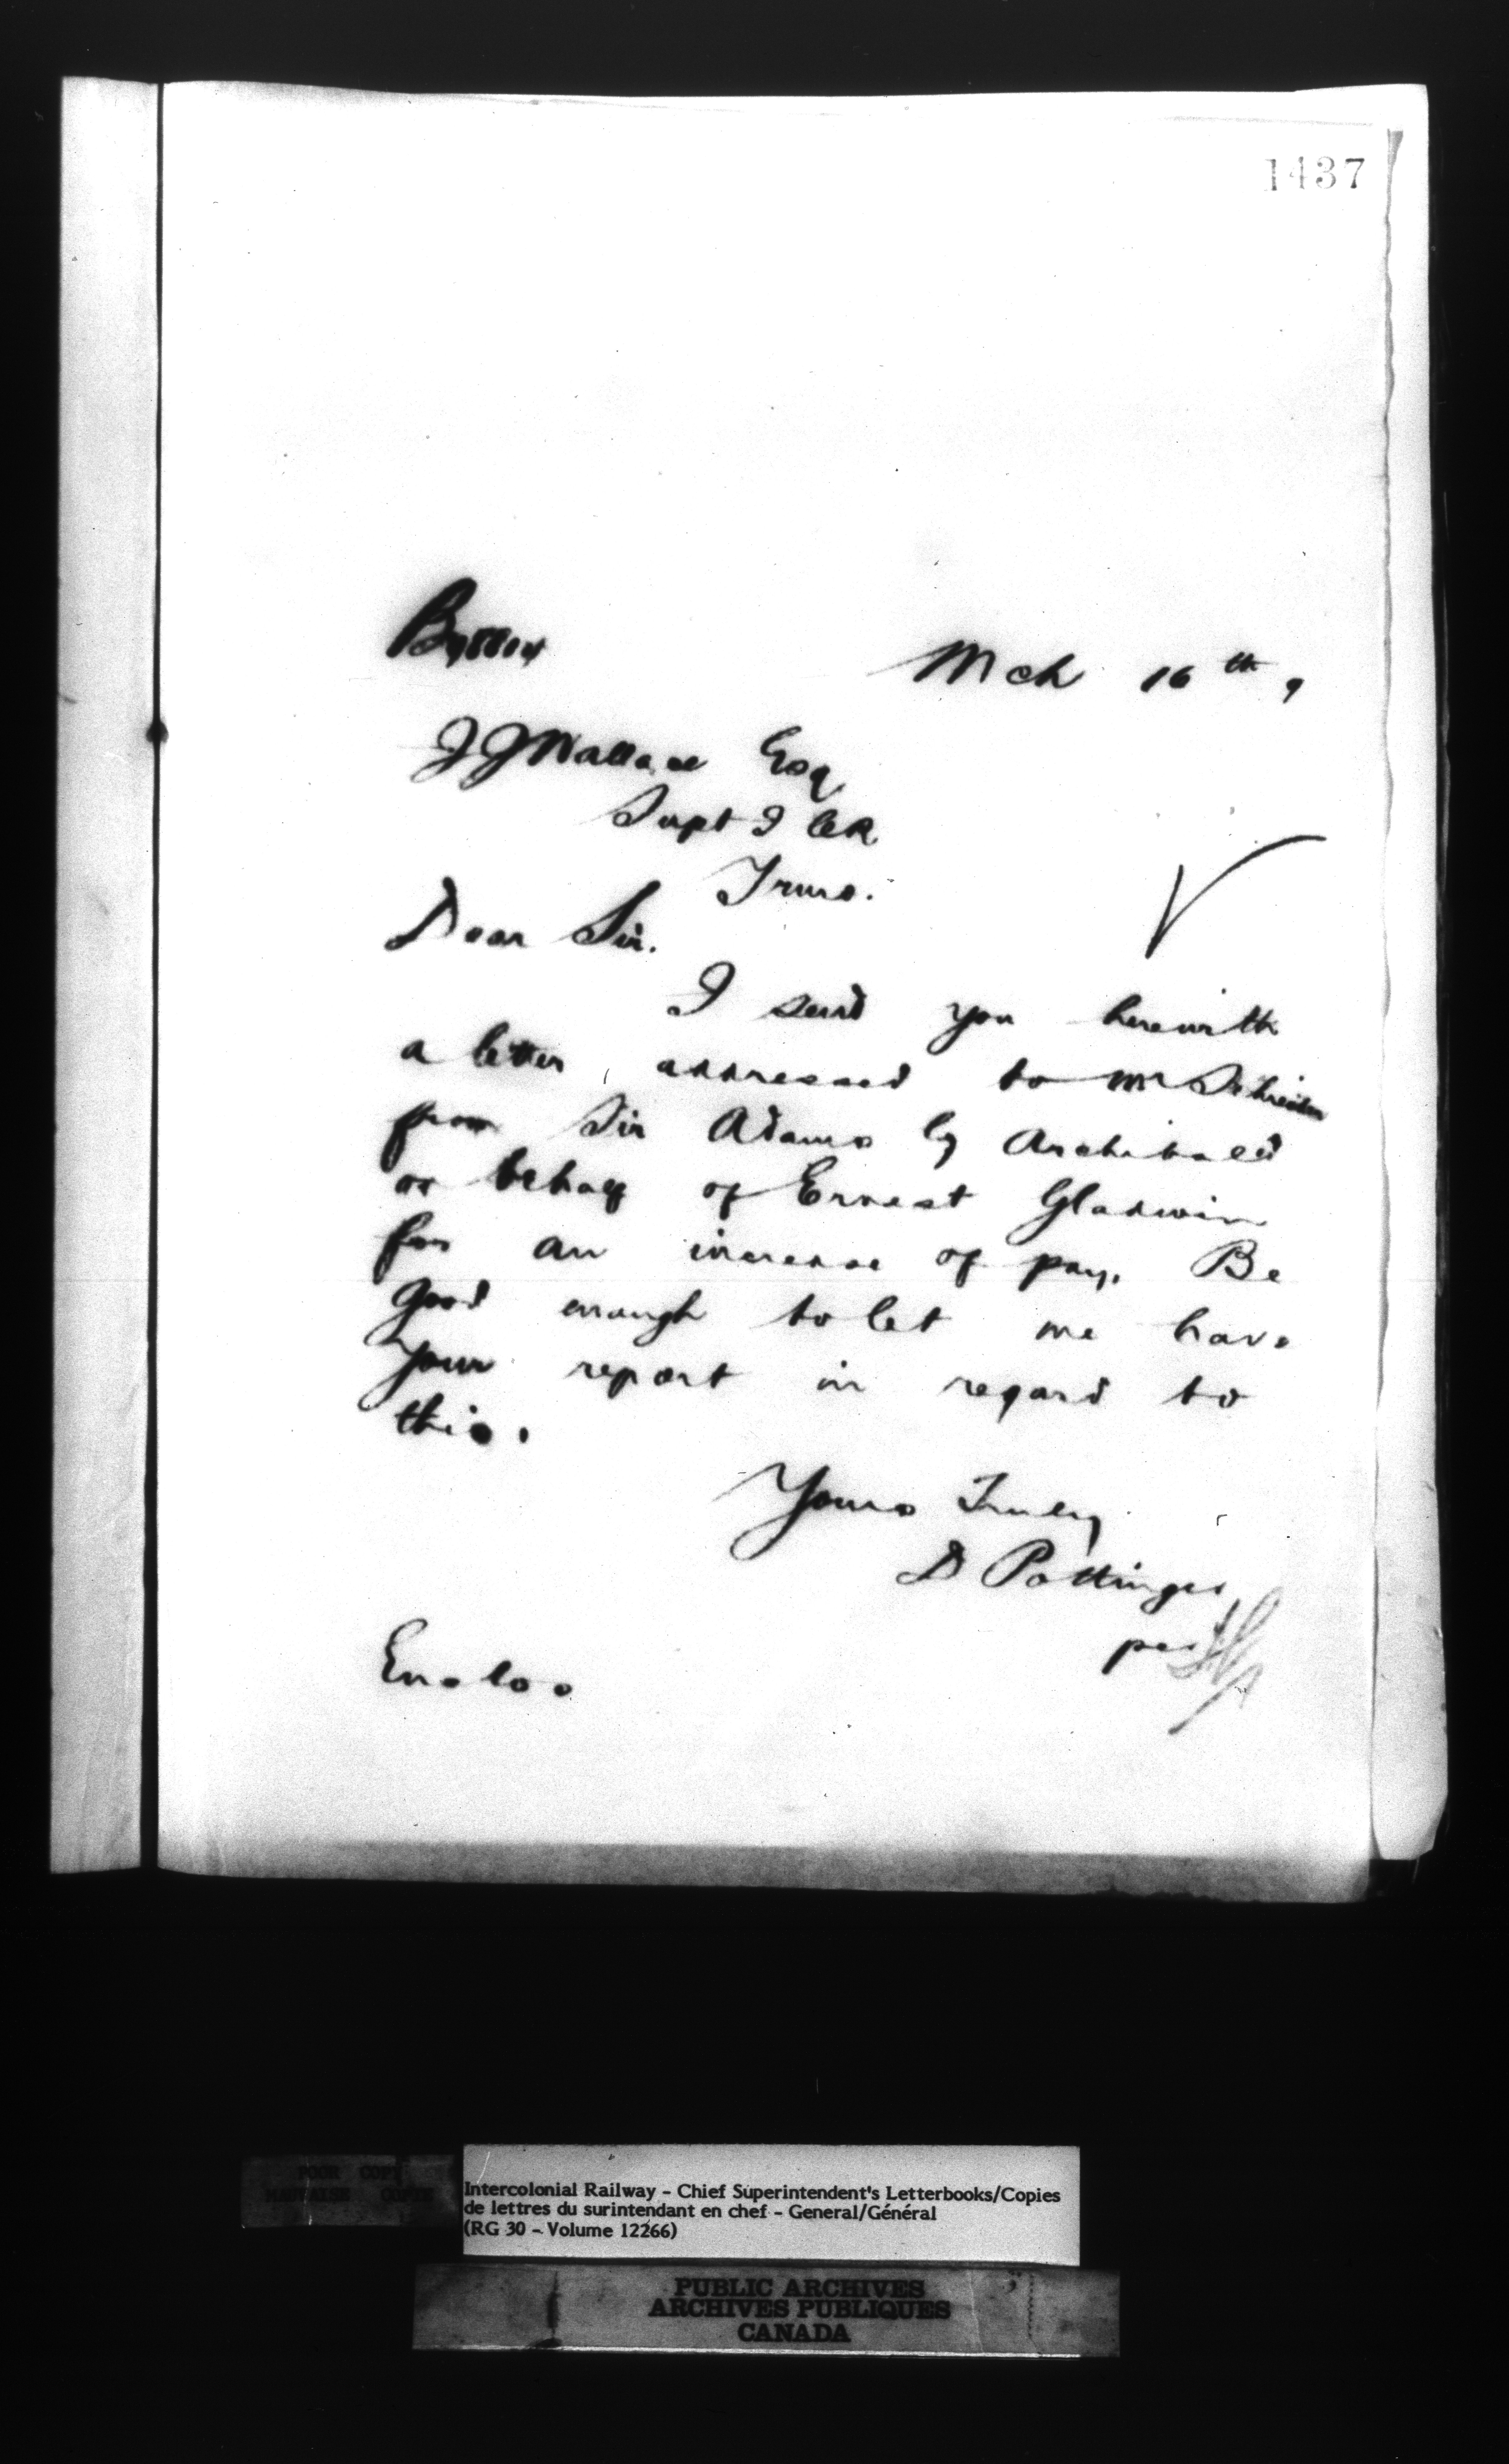 1437
Mch 16th,
J J Wallace Esq
Supt I C R
Truro.
Dear Sir.
I send you herewith
a letter, addressed to Mr Schreiber
from Sir Adams G Archibald
on behalf of Ernest Gladwin
for an increase of pay. Be
good enough to let me have
your report in regard to
this.
Yours Truly
D Pottinger
per
Enclos
POOR COPY
MAUVAISE COPIE
Intercolonial Railway - Chief Superintendent's Letterbooks/Copies
de lettres du surintendant en chef - General/Général
(RG 30 - Volume 12266)
PUBLIC ARCHIVES
ARCHIVES PUBLIQUES
CANADA